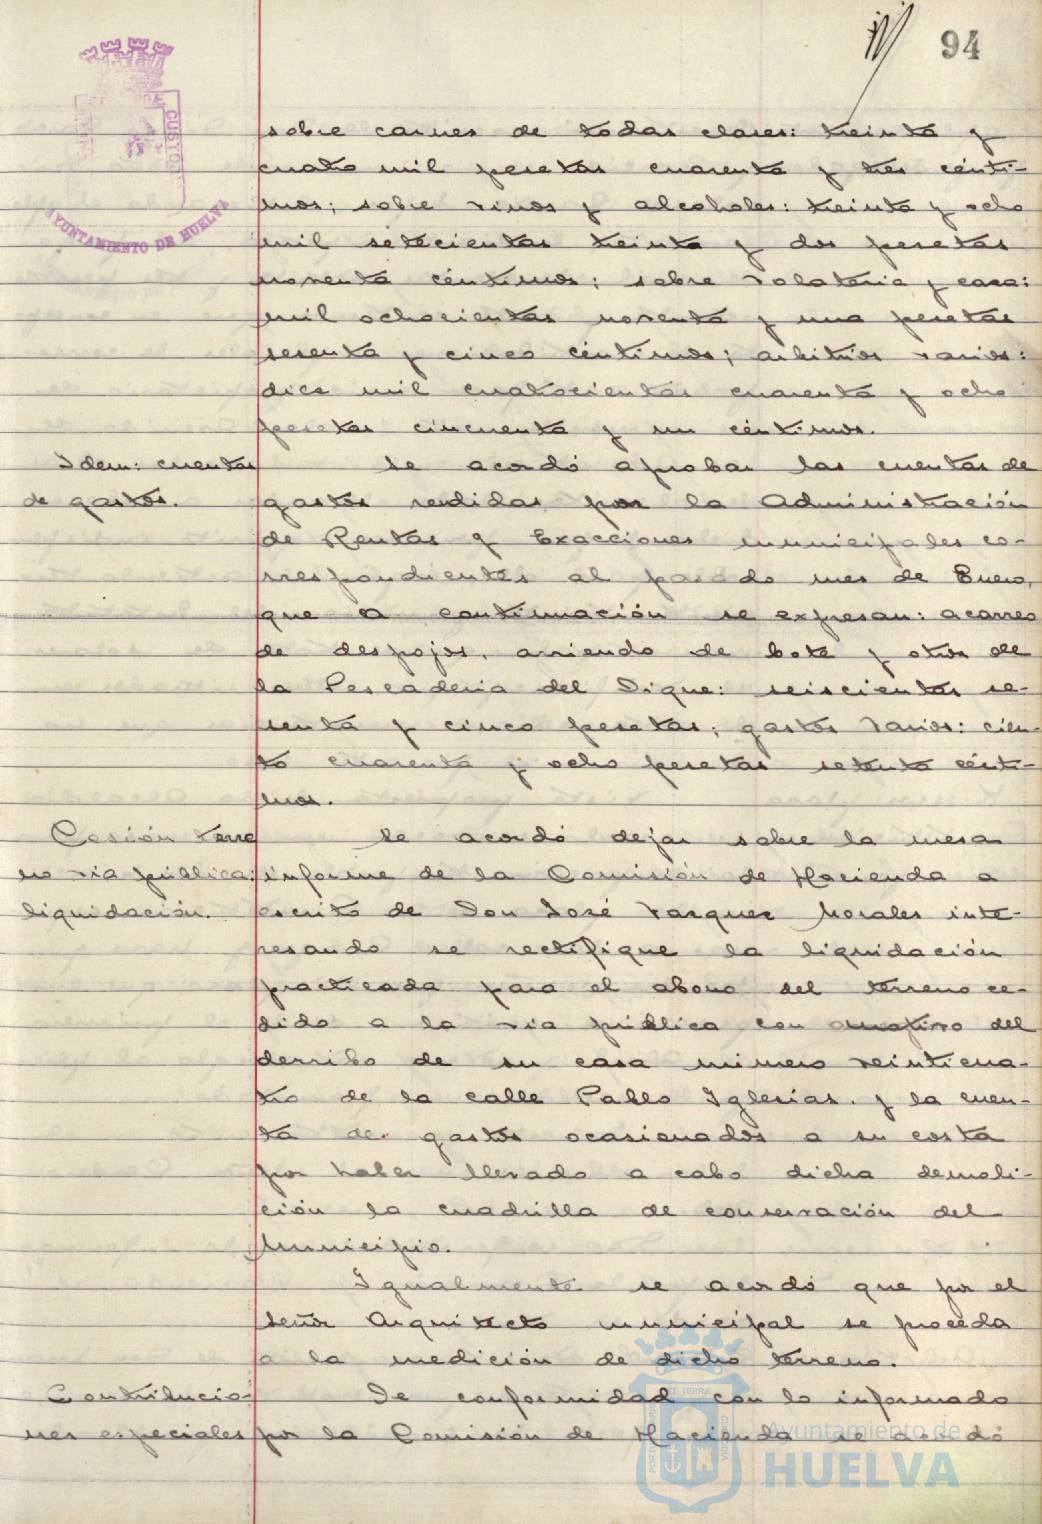 94
sobre carnes de todas clases: treinta y
cuatro mil pesetas cuarenta y tres cénti-
mos; sobre vinos y alcoholes: treinta y ocho
mil setecientas treinta y dos pesetas
noventa céntimos; sobre volateria y caza:
mil ochocientas noventa y una pesetas
sesenta y cinco céntimos; arbitrios varios:
diez mil cuatrocientas cuarenta y ocho
pesetas cincuenta y un céntimos.
Idem: cuentas
de gastos.
Se acordó aprobar las cuentas de
gastos rendidas por la Administración
de Rentas y Exacciones municipales co-
rrespondientes al pasado mes de Enero,
que a continuación se expresan: acarreo
de despojos, arriendo de bote y otros de
la Pescaderia del Dique: seiscientas se-
senta y cinco pesetas; gastos varios: cien-
to cuarenta y ocho pesetas setenta cénti-
mos.
Cesión terre
no via pública:
liquidación.
Se acordó dejar sobre la mesa
informe de la Comisión de Hacienda a
escrito de Don José Vazquez Morales inte-
resando se rectifique la liquidación
practicada para el abono del terreno ce-
dido a la via pública con motivo del
derribo de su casa número veinticua-
tro de la calle Pablo Iglesias, y la cuen-
ta de gastos ocasionados a su costa
por haber llevado a cabo dicha demoli-
ción la cuadrilla de conservación del
Municipio.
Igualmente se acordó que por el
Señor Arquitecto municipal se proceda
a la medición de dicho terreno.
Contribucio-
nes especiales
De conformidad con lo informado
por la Comisión de Hacienda se acordó
CUSTOD
AYUNTAMIENTO DE HUELVA
Ayuntamiento de
HUELVA